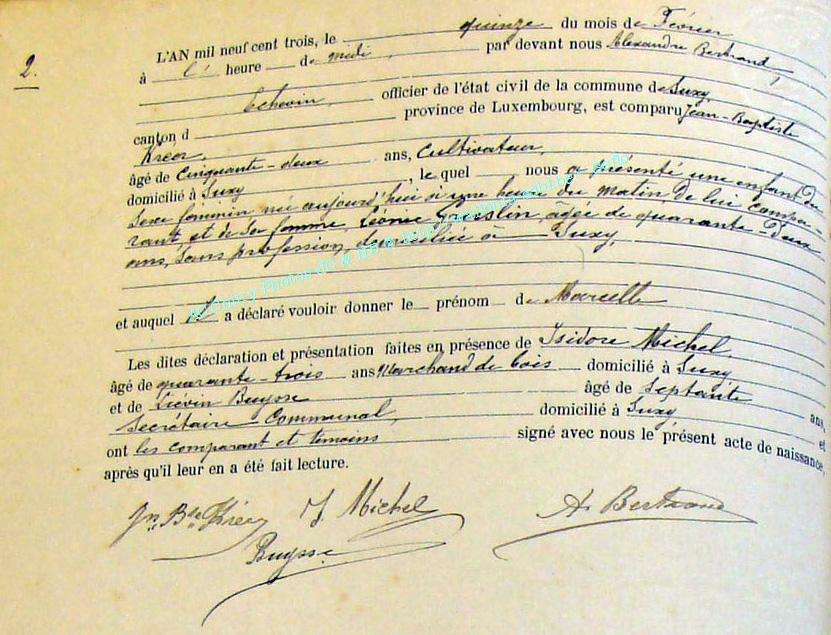 2.
L'AN mil neuf cent trois, le quinze du mois de Février
à l' heure de midi, par devant nous Alexandre Bertrand,
Echevin, officier de l'état civil de la commune de Suxy
canton d province de Luxembourg, est comparu Jean-Baptiste
Kréer,
âgé de Cinquante-deux ans, Cultivateur,
domicilié à Suxy, le quel nous a présenté une enfant du
sexe féminin née aujourd'hui à une heure du matin, de lui compa-
rant, et de Sa femme, Léonie âgée de quarante-deux
ans, sans profession, domiciliée à Suxy,
et auquel il a déclaré vouloir donner le prénom de Marcelle
Les dites déclaration et présentation faites en présence de Isidore Michel,
âgé de quarante-trois ans Marchand de bois domicilié à Suxy
et de Liévin Buysse âgé de Septante ans,
Secrétaire Communal, domicilié à Suxy et
ont les comparant et témoins signé avec nous le présent acte de naissance,
après qu'il leur en a été fait lecture.
Jn. Bte Kréer J. Michel A. Bertrand
Buysse